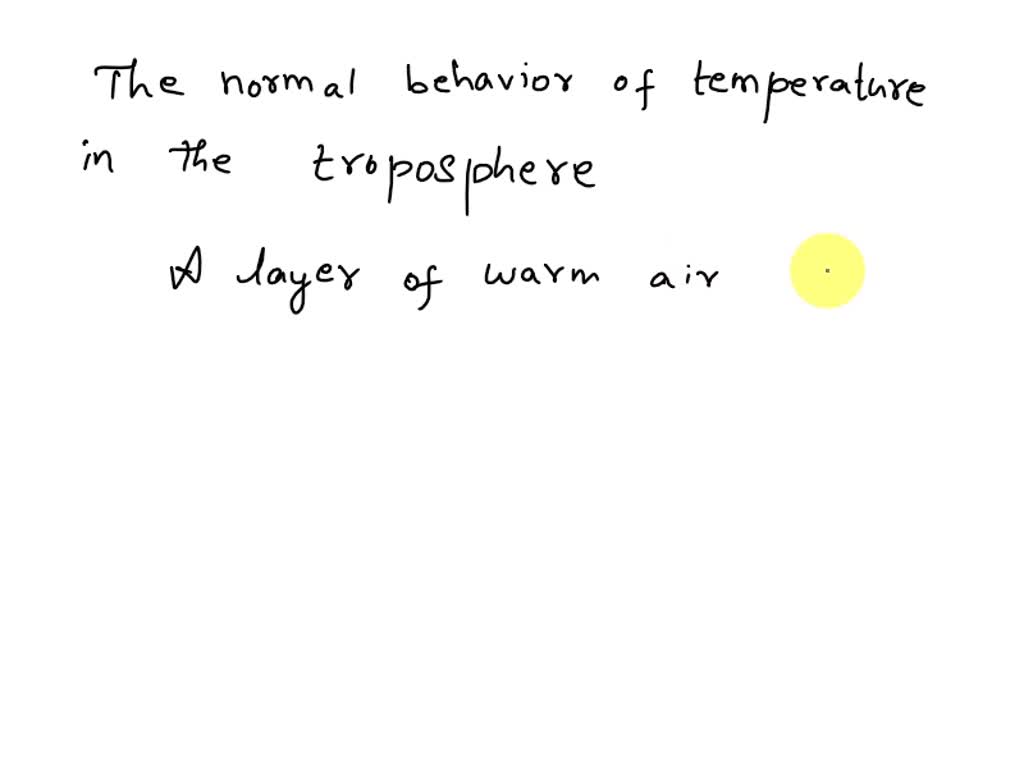 The normal behavior of temperature
in the troposphere
A layer of warm air